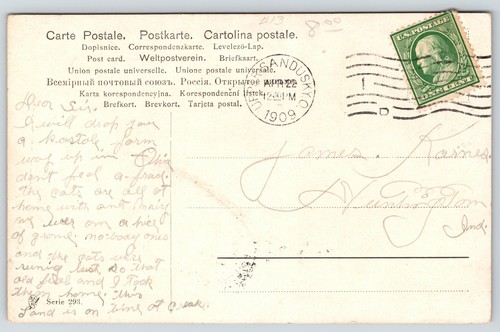 #13
8.00
Carte Postale. Postkarte. Cartolina postale.
Dopisnice. Correspondenzkarte. Levelező-Lap.
Post card. Weltpostverein. Briefkaart.
Union postale universelle. Unione postale universale.
Всемірный почтовый союзъ. Россія. Открытое
Karta korrespondencyjna. Korespondenční lístek
Brefkort. Brevkort. Tarjeta postal.
UPPER SANDUSKY, O.
APR 22
12 M
1909
U.S. POSTAGE
ONE CENT
Dear Sir.
I will drop you
a postole form
way up in Ohio
dont feel a frad.
the cats are all at
home with ant mary
we wer on a pice
of ground nobody ones
and the cats were
runing with so that
old feal and I took
them home. this
Land is on line of creek
James Karnes
Huntington
Ind.
Serie 293.